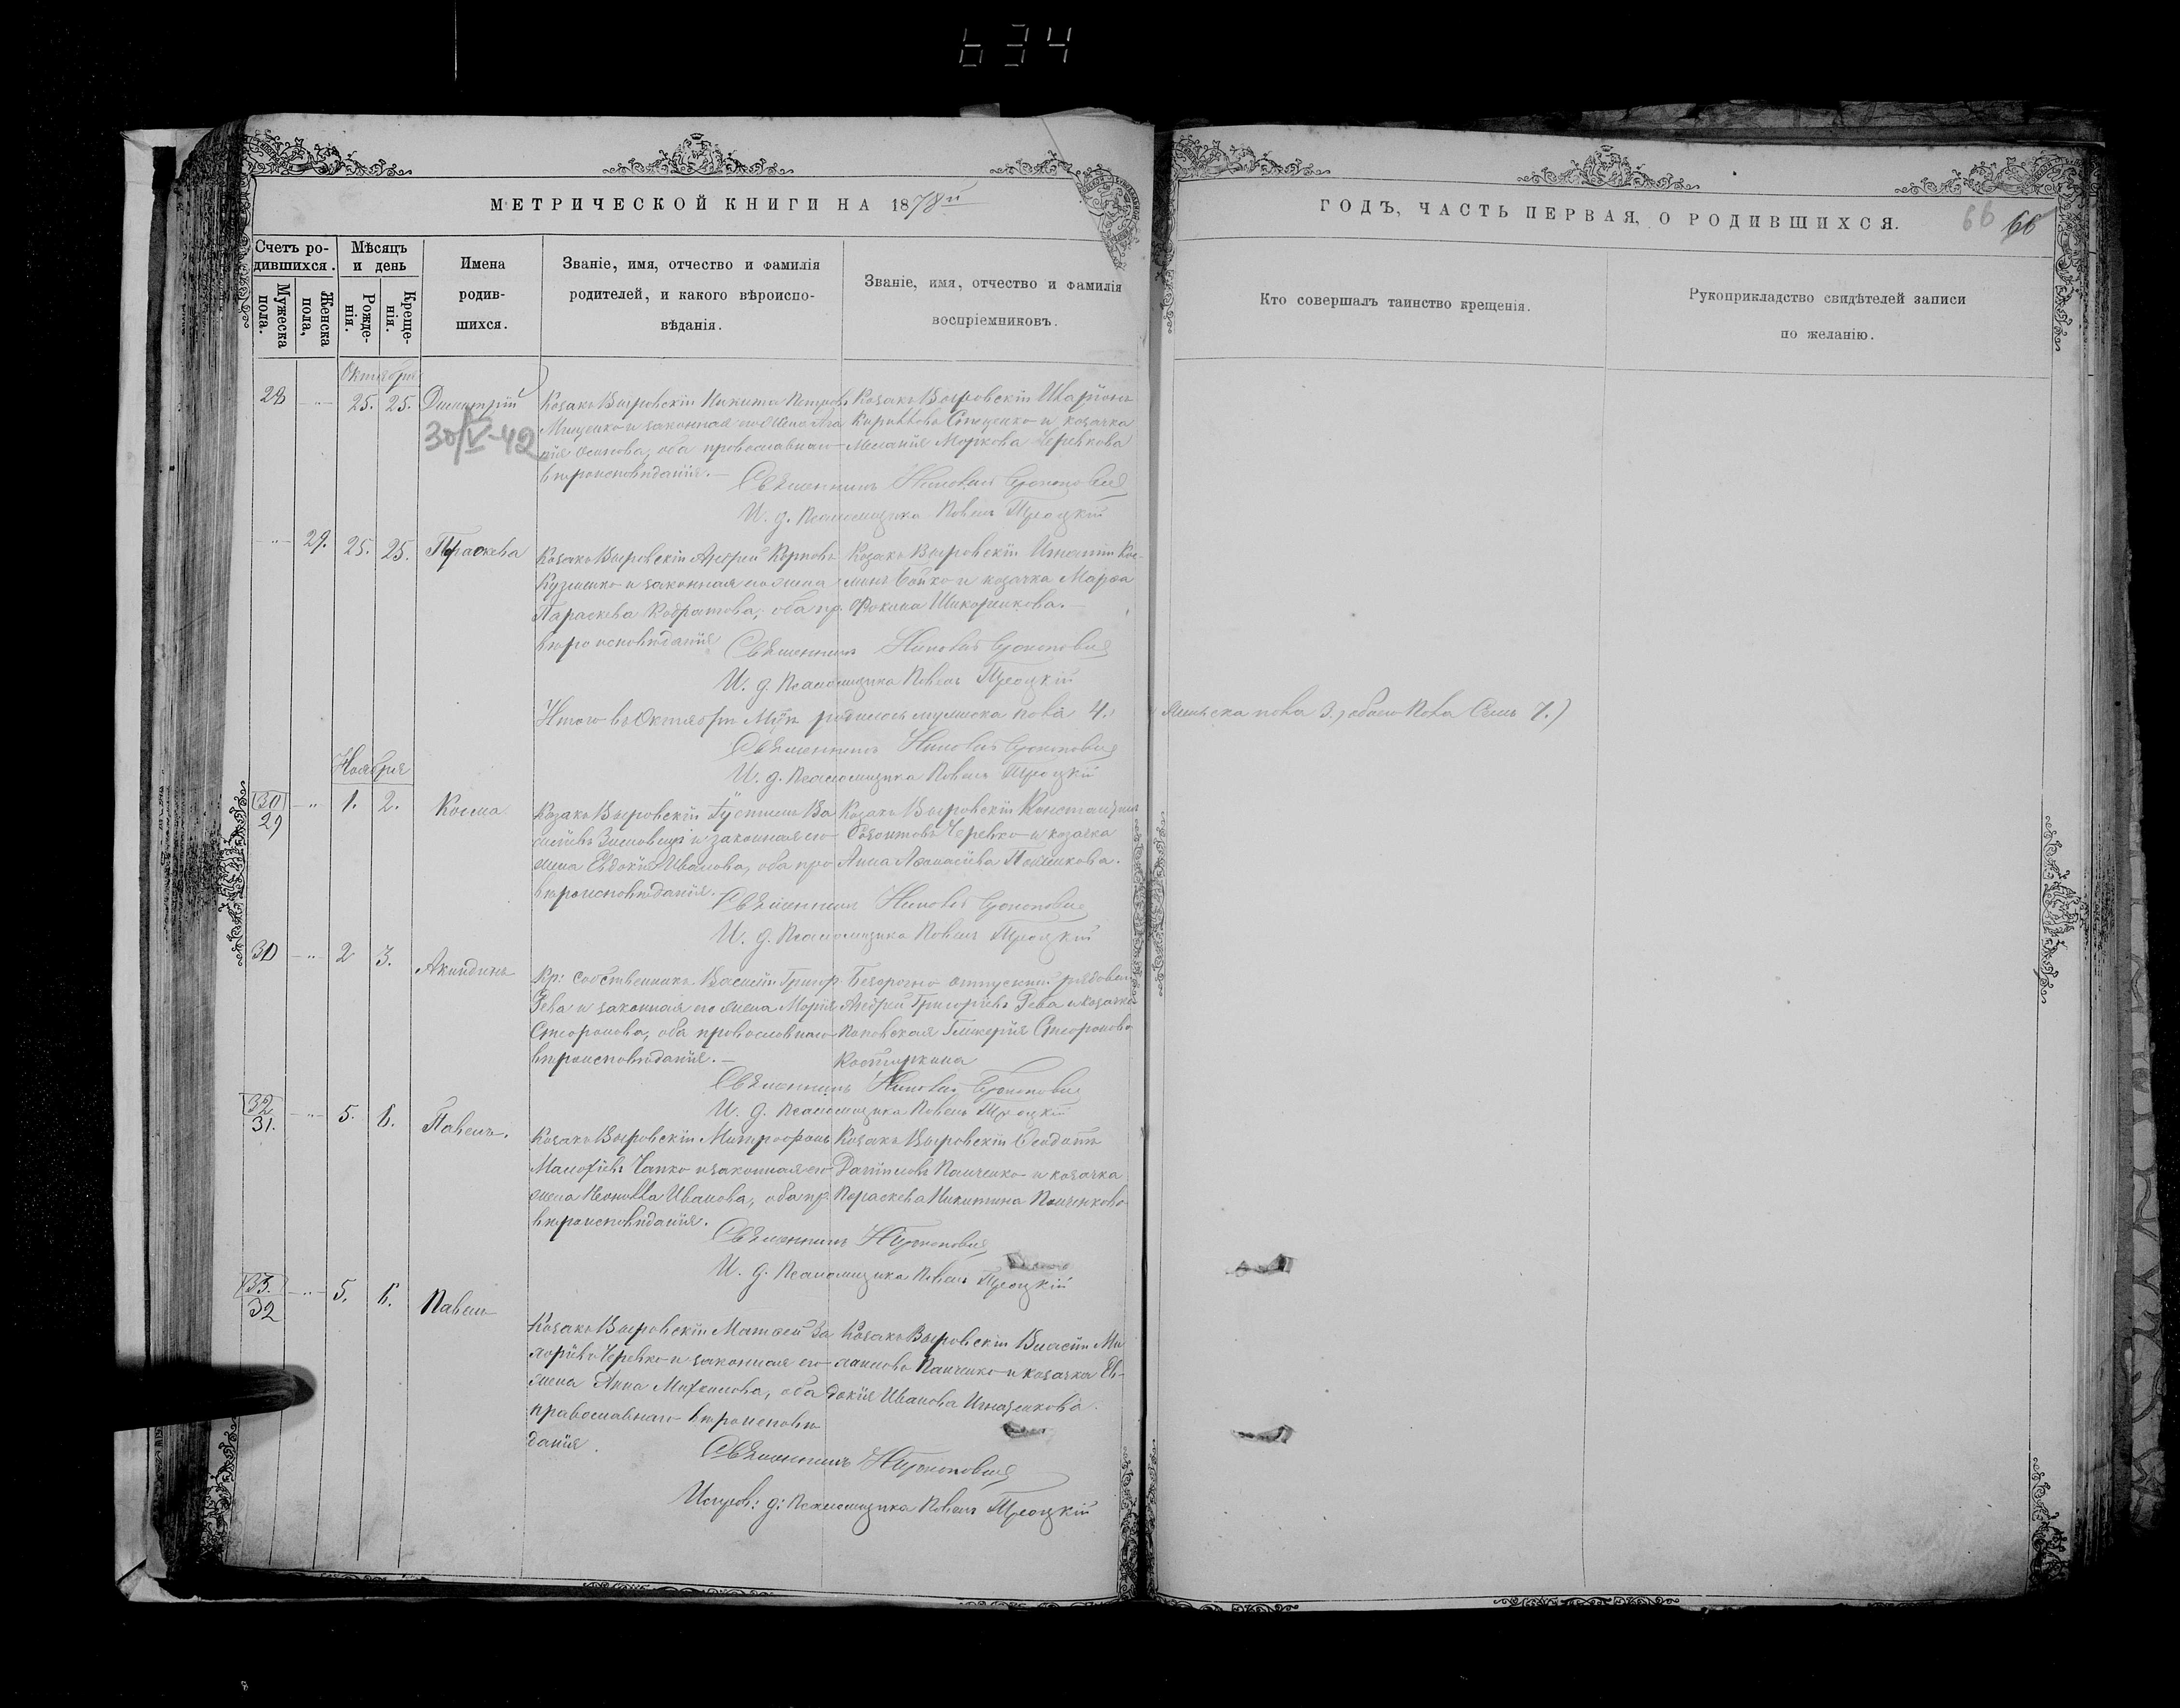 634
МЕТРИЧЕСКОЙ КНИГИ НА 1878й
ГОДЪ, ЧАСТЬ ПЕРВАЯ, О РОДИВШИХСЯ.
66 66
Счетъ ро-
дившихся.
Мужеска
пола.
Женска
пола,
Мѣсяцъ
и день
Рожде-
нія.
Креще-
нія.
Имена
родив-
шихся.
Званіе, имя, отчество и фамилія
родителей, и какого вѣроиспо-
вѣданія.
Званіе, имя, отчество и фамилія
воспріемниковъ.
Кто совершалъ таинство крещенія.
Рукоприкладство свидѣтелей записи
по желанію.
Октября
28 25. 25. Димитрій
30/V-42
Козакъ Выровскій Никита Петровъ
Мищенко и законная его жена Ага
пія Осипова, оба православнаго
вѣроисповѣданія.
Козакъ Выровскій Иларіонъ
Кирилловъ Стеценко и козачка
Меланія Маркова Черевкова
Священникъ
И. д. Псаломщика Павелъ Троцкій
29. 25. 25. Параскева
Козакъ Выровскій Андрей Карповъ
Кузменко и законная его жена
Параскева Кодратова, оба пр.
вѣроисповѣданія
Козакъ Выровскій Игнатій Кос-
минъ Бойко и козачка Марѳа
Фокина
Священникъ
И. д. Псаломщика Павелъ Троцкій
Итого въ Октябрѣ Мцѣ родилось мужеска пола 4.
женска пола 3., обоего пола Семь 7.)
Священникъ
И. д. Псаломщика Павелъ Троцкій
Ноября
30
29 1. 2. Косма
Козакъ Выровскій Густинъ Ва
силіевъ и законная его
жена Евдокія Иванова, оба пр
вѣроисповѣданія.
Козакъ Выровскій Константинъ
Черевко и козачка
Анна Аѳанасіева
Священникъ
И. д. Псаломщика Павелъ Троцкій
30 2 3. Акиндинъ
Кр: собственникъ Василій Григор.
Гева и законная его жена Марія
Стефанова, оба православнаго
вѣроисповѣданія.
Безсрочно отпускной рядовый
Андрей Григоріевъ Гева и козачка
Поповская Гликерія Стефанова
Священникъ
И. д. Псаломщика Павелъ Троцкій
32
31. 5. 6. Павелъ.
Козакъ Выровскій Митрофанъ
Чапко и законная его
жена Иванова, оба пр.
вѣроисповѣданія.
Козакъ Выровскій
Даніиловъ Панченко и козачка
Параскева Никитина Панченкова
Священникъ
И. д. Псаломщика Павелъ Троцкій
33.
32 5. 6. Павелъ
Козакъ Выровскій Матѳей За
харіевъ Черевко и законная его
жена Анна Михаилова, оба
православнаго вѣроисповѣ
данія.
Козакъ Выровскій Власій Ми
хаиловъ Панченко и козачка Ев-
докія Иванова Игнатенкова.
Священникъ
Исправ: д: Псаломщика Павелъ Троцкій